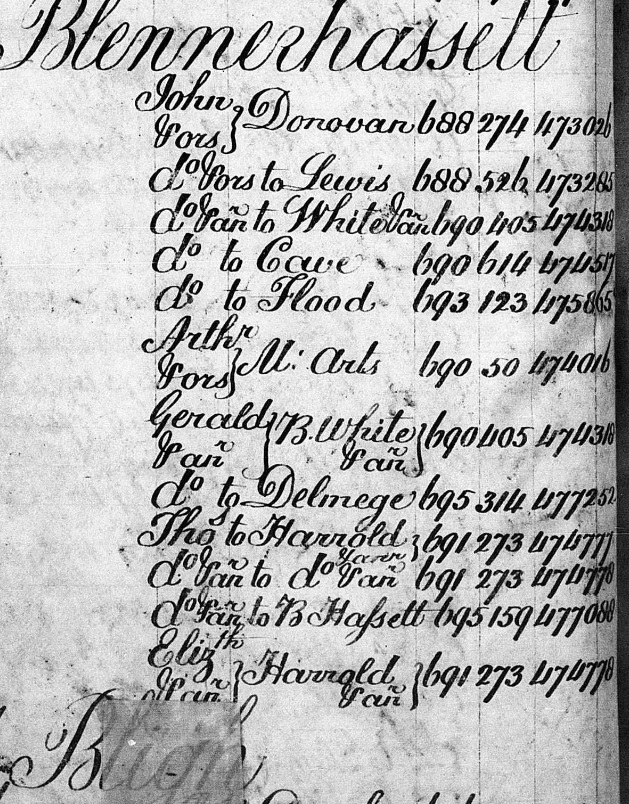 Blennerhassett
John
&ors } Donovan 688 274 473026
do &ors to Lewis 688 526 473285
do & añr to White & añr 690 405 474318
do to Cave 690 614 474517
do to Flood 693 123 475865
Arthr
&ors } M: Arts 690 50 474016
Gerald
& añr } B. White & añr } 690 405 474318
do to Delmege 695 314 477252
Tho to Harrold } 691 273 474777
do & añr to do & añr 691 273 474778
do & añr to B Hassett 695 159 477088
Elizth
& añr } Harrold & añr } 691 273 474778
Bligh